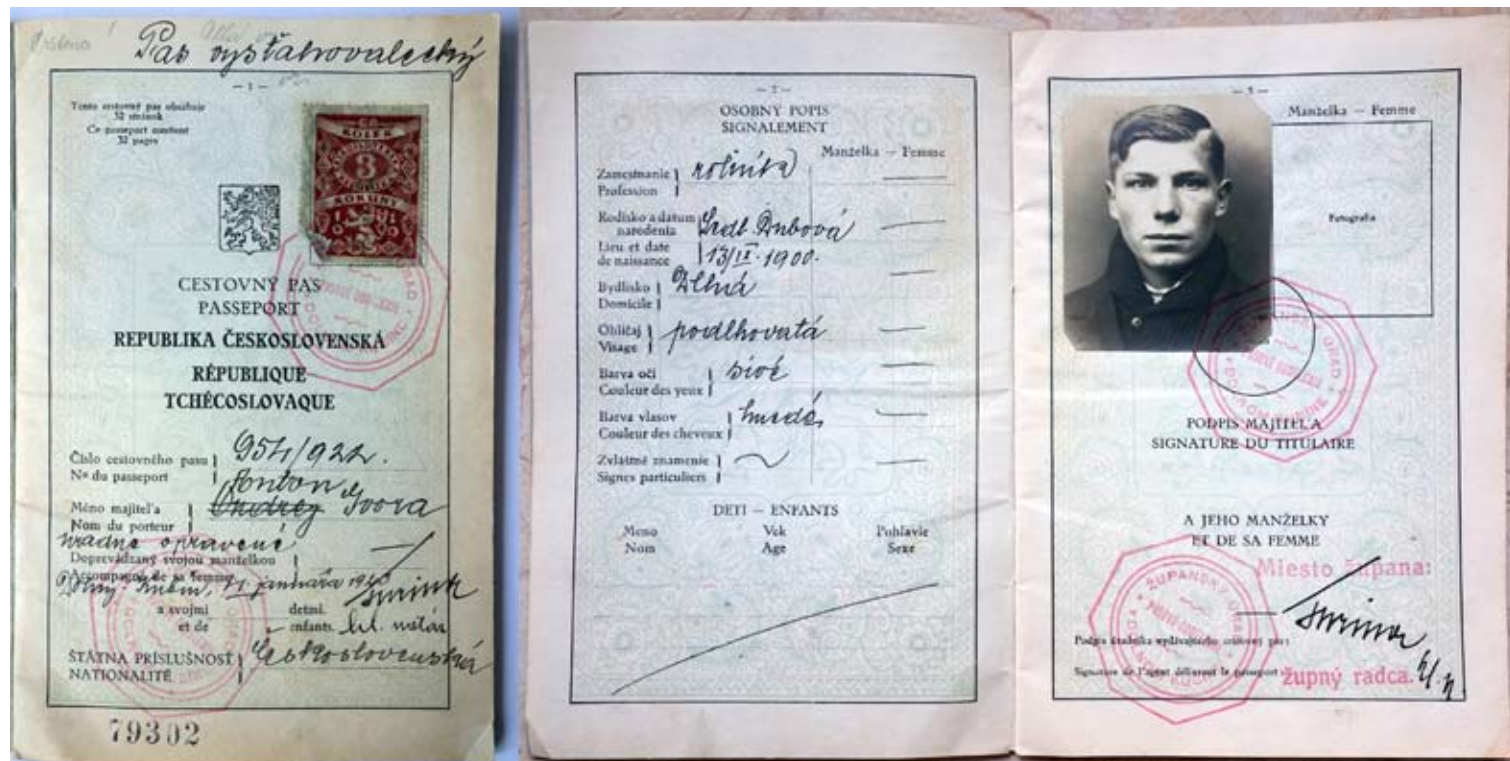 Pas vysťahovalecký
— 1 —
Tento cestovný pas obsahuje
32 stránok
Ce passeport contient
32 pages
KOLEK
3
KORUNY
1919
CESTOVNÝ PAS
PASSEPORT
REPUBLIKA ČESKOSLOVENSKÁ
RÉPUBLIQUE
TCHÉCOSLOVAQUE
Číslo cestovného pasu
Nº du passeport
954/922.
Anton
Méno majiteľa
Nom du porteur
Ondrej
úradne opravené
Doprevádzaný svojou manželkou
Accompagné de sa femme
januára
a svojmi
et de
detmi.
enfants.
ŠTÁTNA PRÍSLUŠNOSŤ
NATIONALITÉ
Československá
79302
— 2 —
OSOBNÝ POPIS
SIGNALEMENT
Manželka — Femme
Zamestnanie
Profession
Rodisko a datum
narodenia
Dubová
Lieu et date
de naissance
13/IX. 1900.
Bydlisko
Domicile
Obličaj
Visage
podlhovatá
Barva očí
Couleur des yeux
sivé
Barva vlasov
Couleur des cheveux
hnedé
Zvláštné znamenie
Signes particuliers
DETI — ENFANTS
Meno
Nom
Vek
Age
Pohlavie
Sexe
Manželka — Femme
Fotografia
PODPIS MAJITEĽA
SIGNATURE DU TITULAIRE
A JEHO MANŽELKY
ET DE SA FEMME
Miesto župana:
Podpis úradníka vydávajúceho cestovný pas:
Signature de l'agent délivrant le passeport
župný radca.